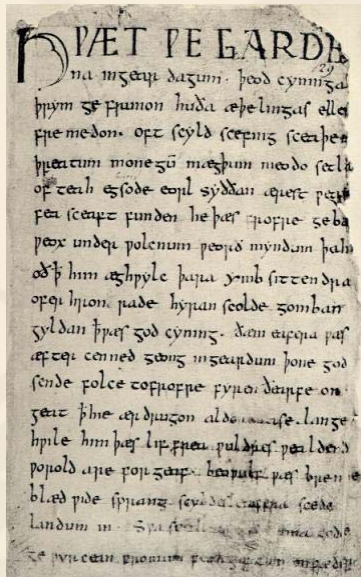 HǷÆT ǷE GARDE
na ingear dagum. þeod cyninga
þrym ge frunon huða æþelingas elle
fre medon. oft scyld scefing sceaþe
þreatum monegū mægþum meodo setla
of teah egsode eorl syððan ærest ƿear
fea sceaft funden he þæs frofre geba
ƿeox under ƿolcnum ƿeorð myndum þah
oð ꝥ him æghƿylc þara ymb sittendra
ofer hron rade hyran scolde gomban
gyldan ꝥ ƿæs god cyning. ðæm eafera ƿæs
æfter cenned geong ingeardum þone god
sende folce tofrofre fyren ðearfe on
geat ꝥ hie ær drugon aldor ase. lange
hƿile him þæs lif frea ƿuldres ƿealdend
ƿorold are for geaf. beoƿulf ƿæs breme
blæd ƿide sprang scyldes eafera scede
landum in. Sƿa uma gode
ge ƿyrcean fromum feoh